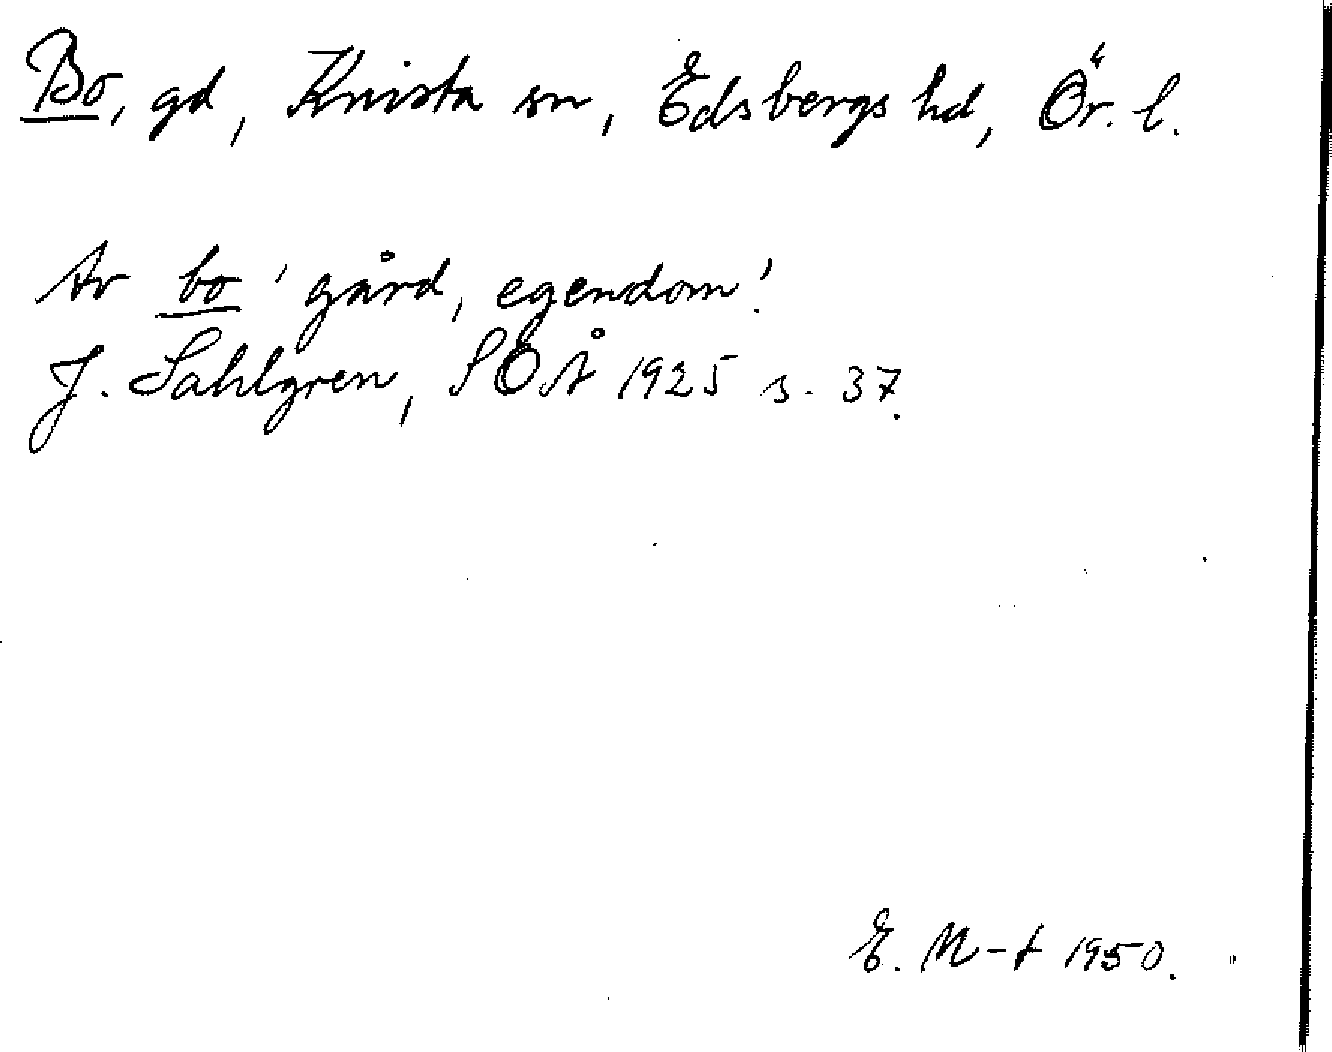 Bo, gd, Knista sn, Edsbergs hd, Ör. l.
Av bo 'gård, egendom'.
J. Sahlgren, SOÅ 1925 s. 37.
E. M-t 1950.